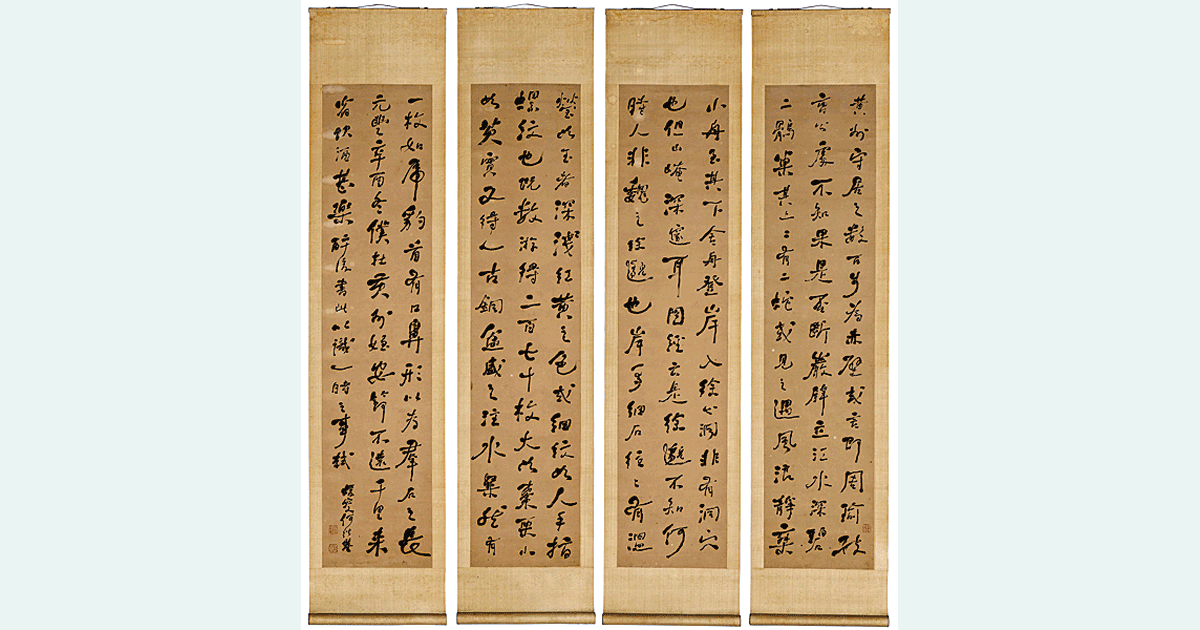 黄州守居之數百步為赤壁或言即周瑜破
曹公處不知果是否斷巖壁立江水深碧
二鶻巢其上〻有二蛇或見之遇風浪靜乘
小舟至其下舍舟登岸入徐公洞非有洞穴
也但山崦深邃耳圖經云是徐邈不知何
時人非魏之徐邈也岸多細石往〻有溫
瑩如玉者深淺紅黄之色或細紋如人手指
螺紋也既數游得二百七十枚大如棗栗小
如芡實又得一古銅盆盛之注水粲然有
一枚如虎豹首有口鼻形以為群石之長
元豐辛酉冬僕在黄州姪安節不遠千里來
省飲酒甚樂醉後書此以識一時之事軾
蝯叟何紹基